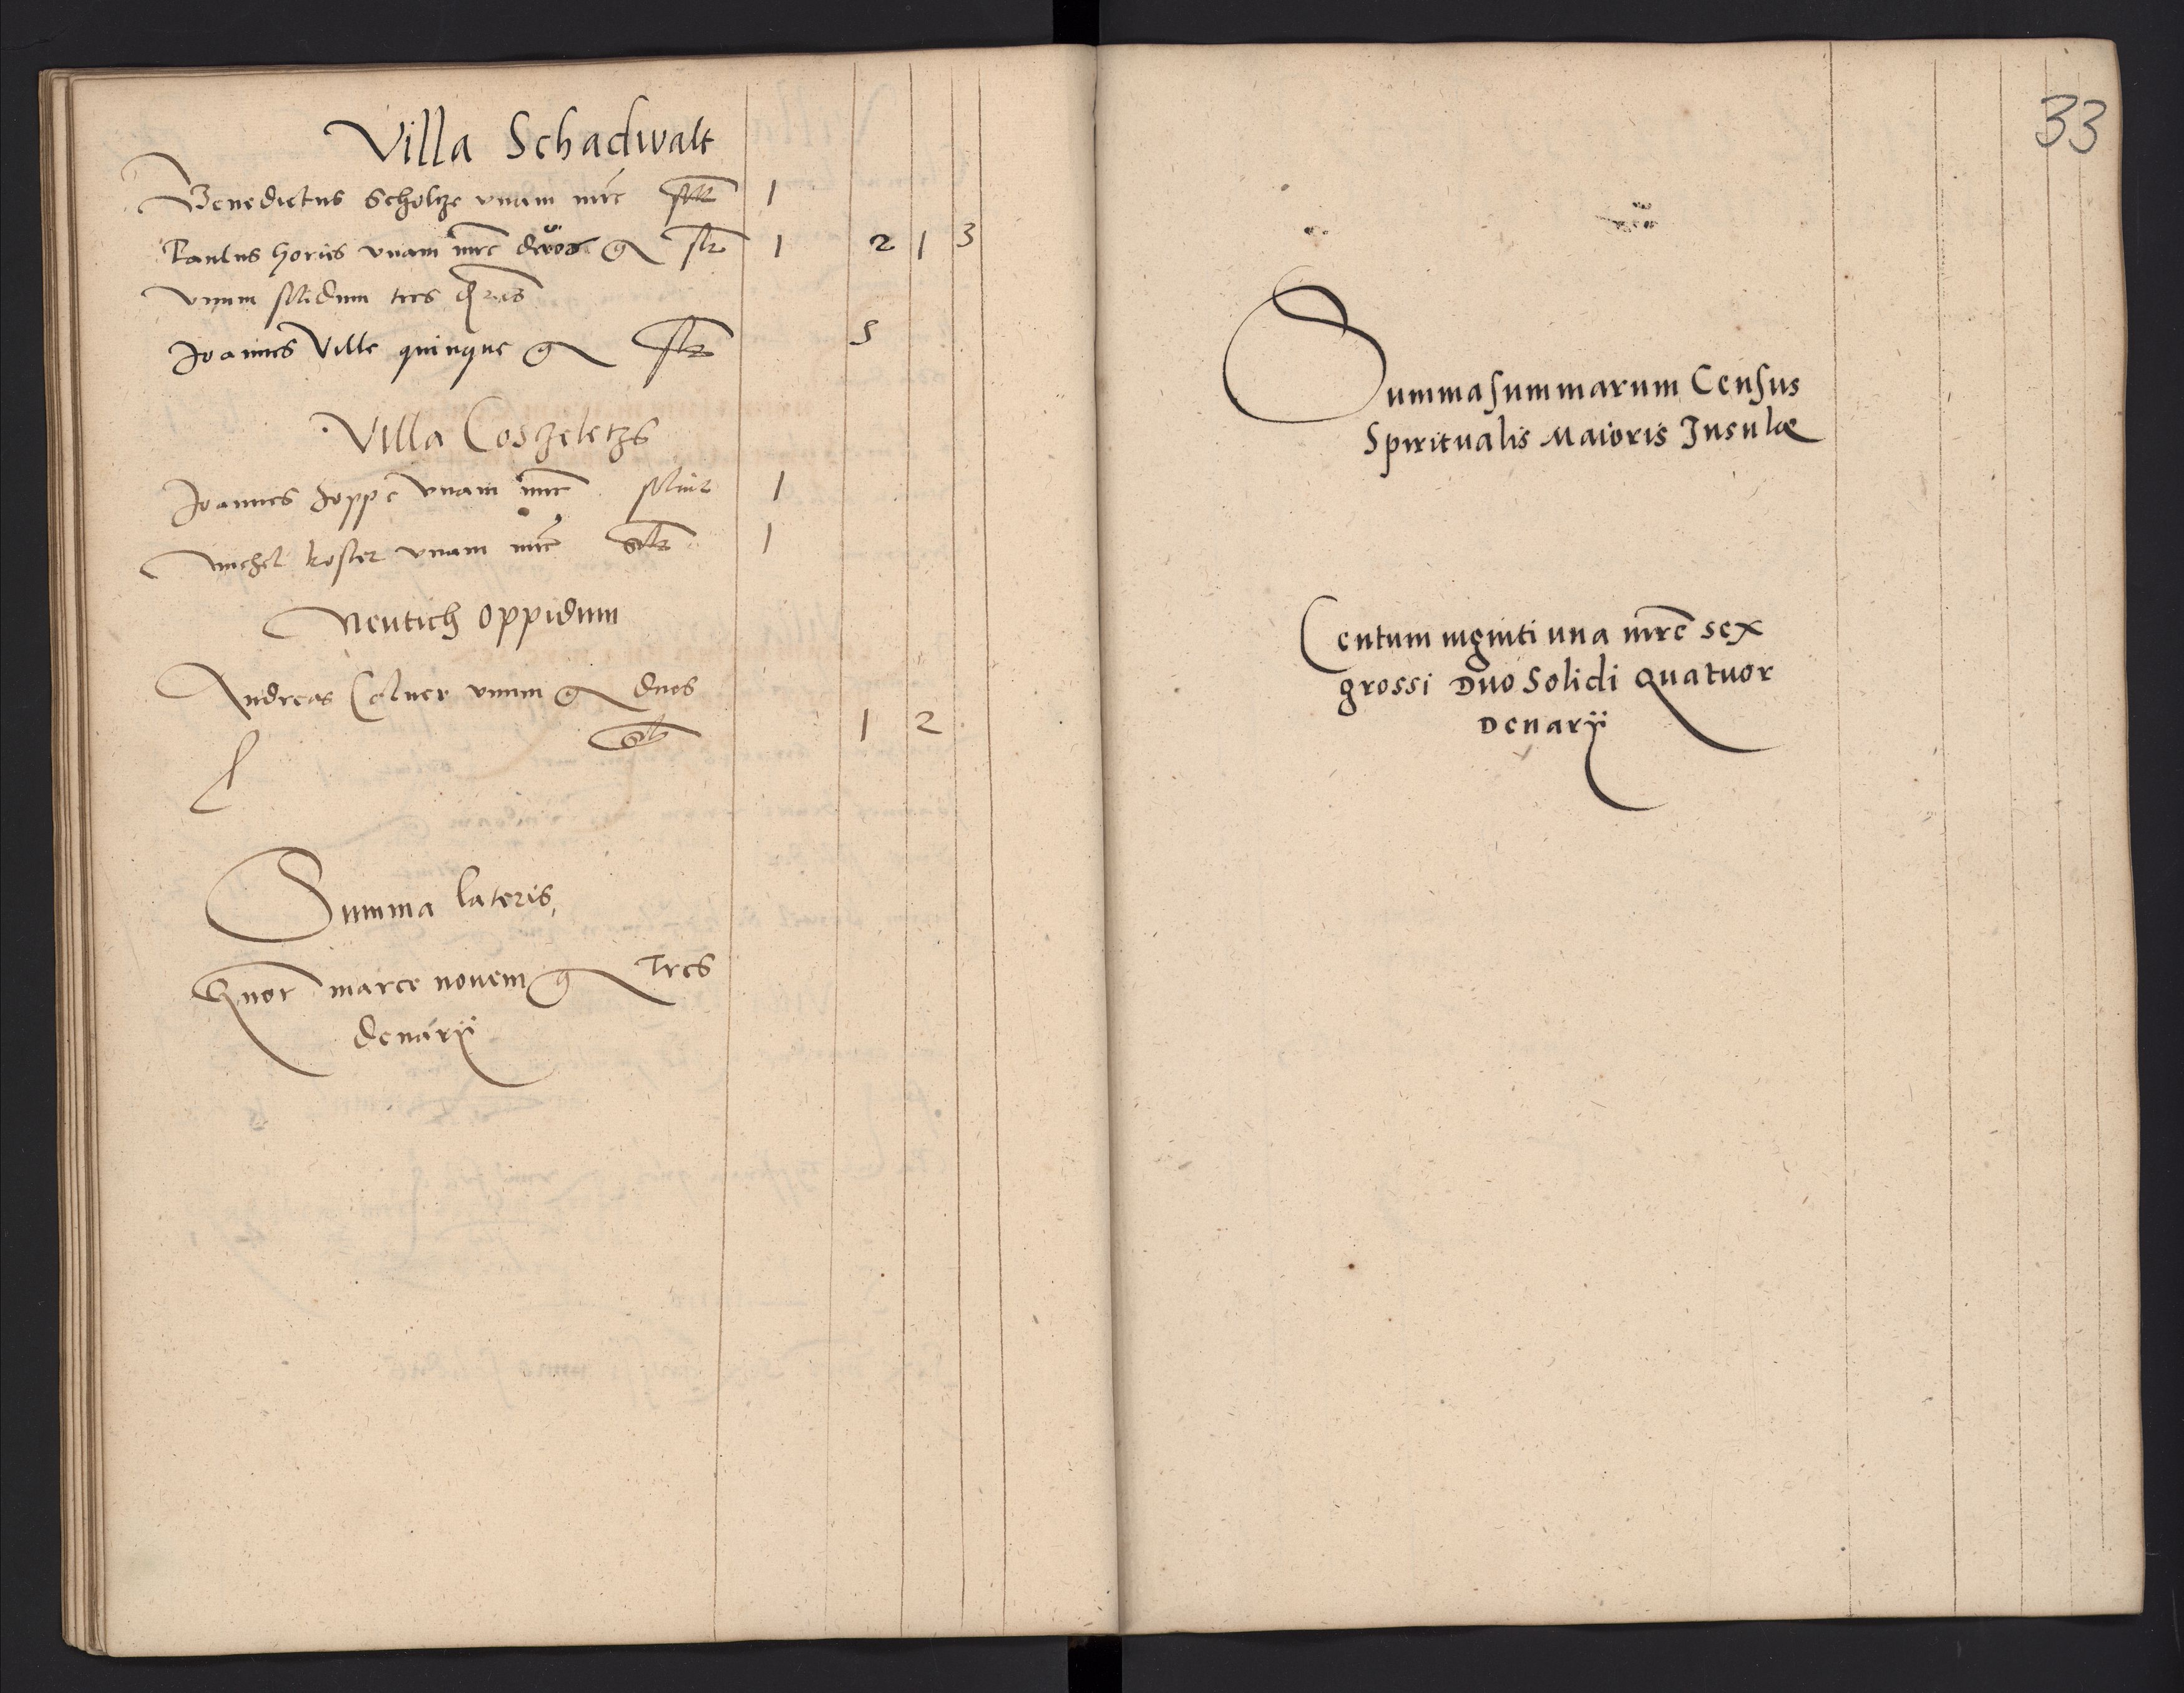 Villa Schadwalt
Benedictus Scholtze vnam mrc solt 1
Paulus horiis vnam mrc duos g solt 1 2 1 3
vnum solidum tres
Joannes Ville quinque g solt 5
Villa Coszeletzs
Joannes Joppe vnam mrc soluit 1
michel koster vnam mrc solt 1
Neutich Oppidum
Andreas Colner vnum g duos
sol 1 2
Summa lateris
Quor marce novem g Tres
denarii
33
Summa summarum Census
Spiritualis Maioris Insulæ
Centum viginti una mrc sex
grossi Duo Solidi Quatuor
Denarii